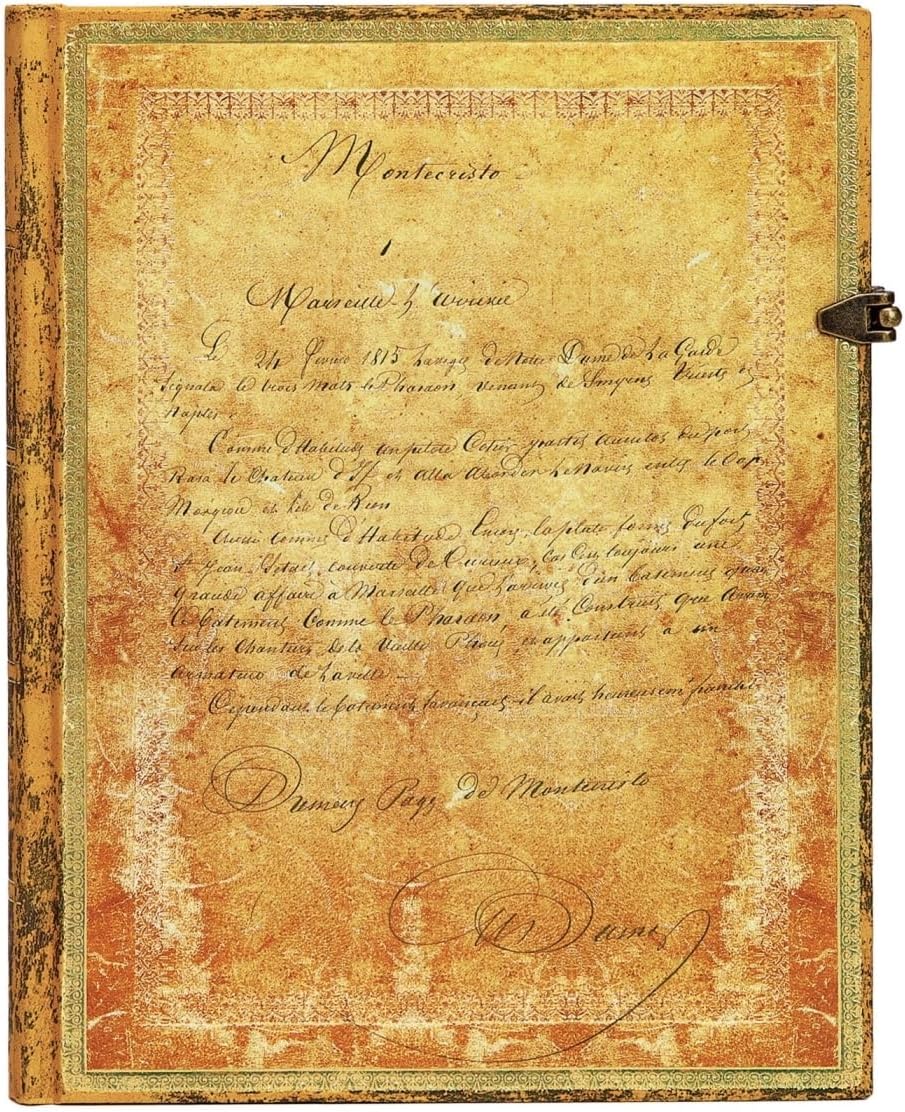 Montecristo
1
Marseille - L'arrivée
Le 24 février 1815 La vigie de Notre Dame de La Garde
Signala le trois mats le Pharaon, venant de Smyrne Trieste et
Naples.
Comme d'Habitude un pilote Cotier partit aussitot du port
Rasa le Chateau d'If et alla Aborder Le Navire entre le Cap
Morgiou et l'ile de Rion
Aussi comme d'Habitude la plate forme du fort
St Jean S'etait couverte de Curieux, Car C'est toujours une
grande affaire à Marseille que L'arrivée d'un batiment quand
Ce batiment Comme le Pharaon, a été Construit
Sur les Chantiers de la Vieille Phocée et appartient a un
armateur de La ville
Cependant le batiment avançait - il avait heureusement franchi
Page de Montecristo
Alex Dumas